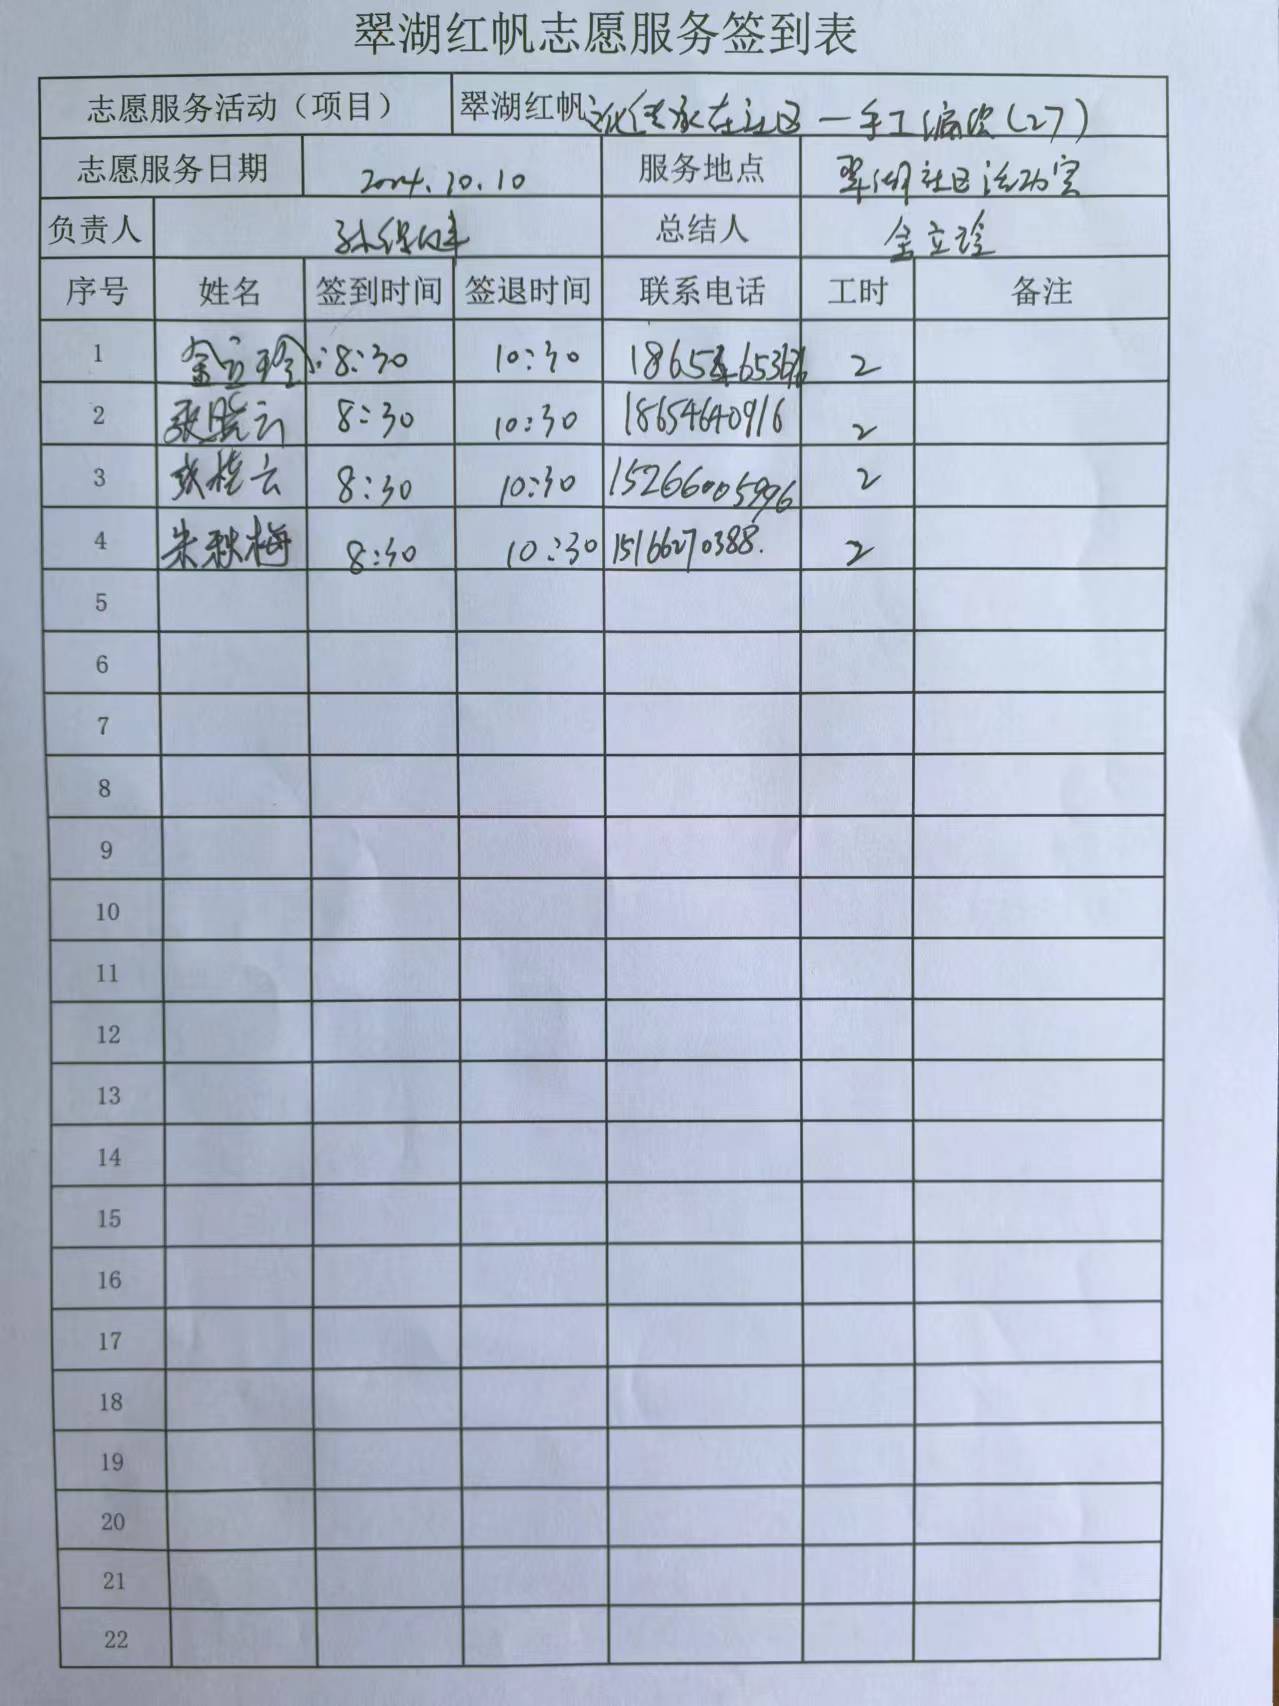 翠湖红帆志愿服务签到表
志愿服务活动（项目） 翠湖红帆 文化传承在社区一手工编织(27)
志愿服务日期 2024.10.10 服务地点 翠湖社区活动室
负责人 孙保健 总结人 金立玲
序号 姓名 签到时间 签退时间 联系电话 工时 备注
1 金立玲 8:30 10:30 2
2 张晓云 8:30 10:30 18654640916 2
3 张桂云 8:30 10:30 15266005996 2
4 朱秋梅 8:30 10:30 15166270388. 2
5
6
7
8
9
10
11
12
13
14
15
16
17
18
19
20
21
22